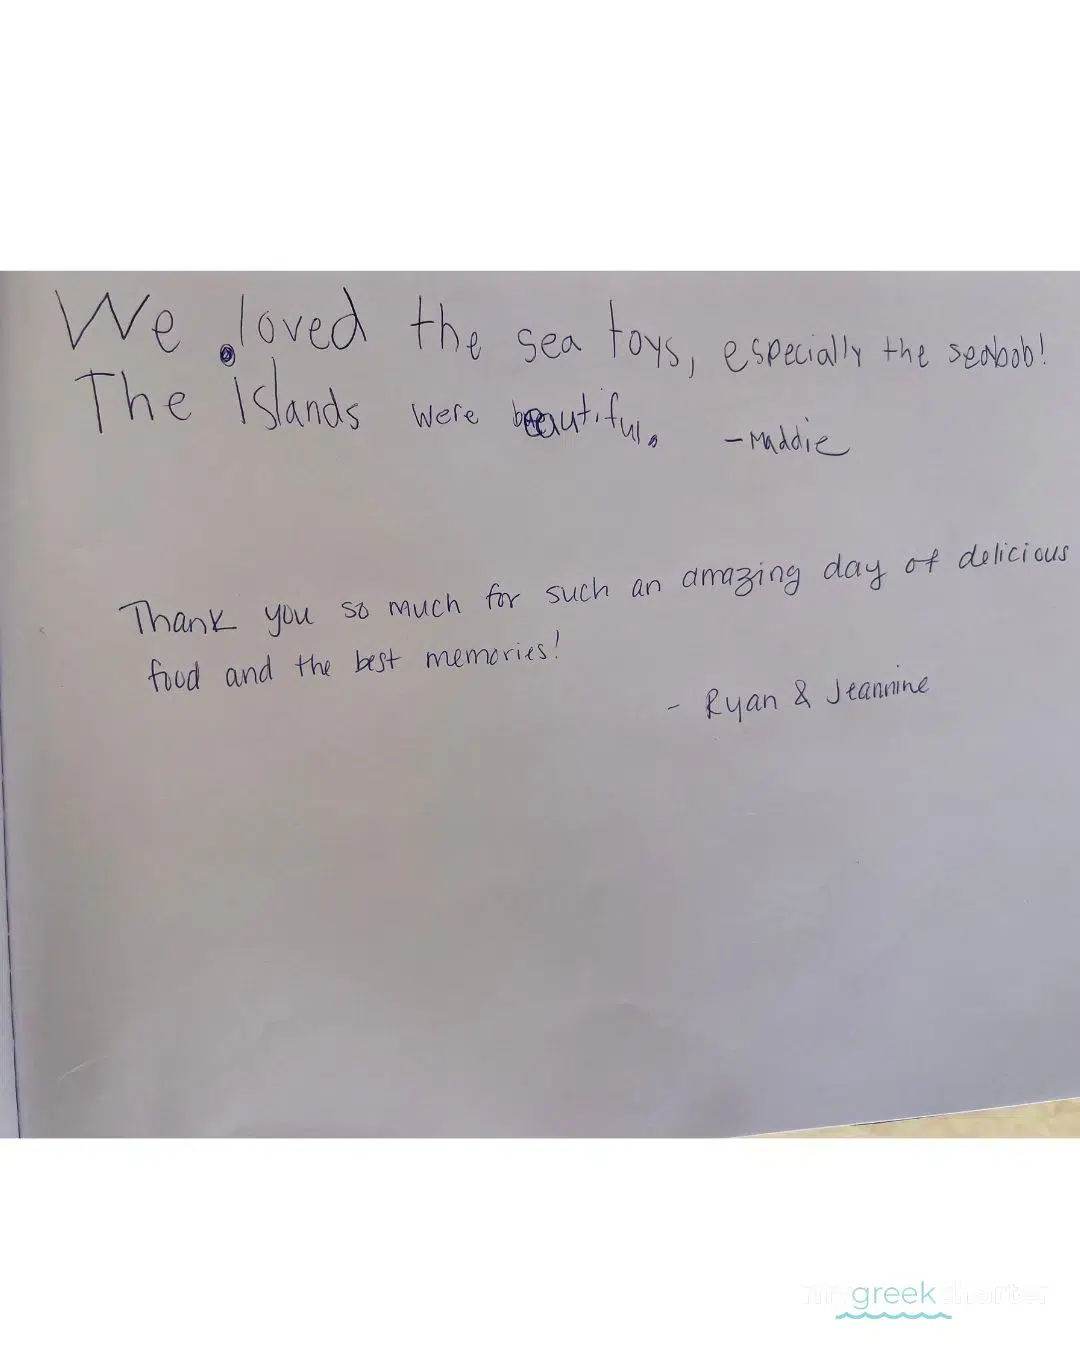 We loved the sea toys, especially the seabob!
The Islands were beautiful. -Maddie
Thank you so much for such an amazing day of delicious
food and the best memories!
- Ryan & Jeannine
mygreekcharter